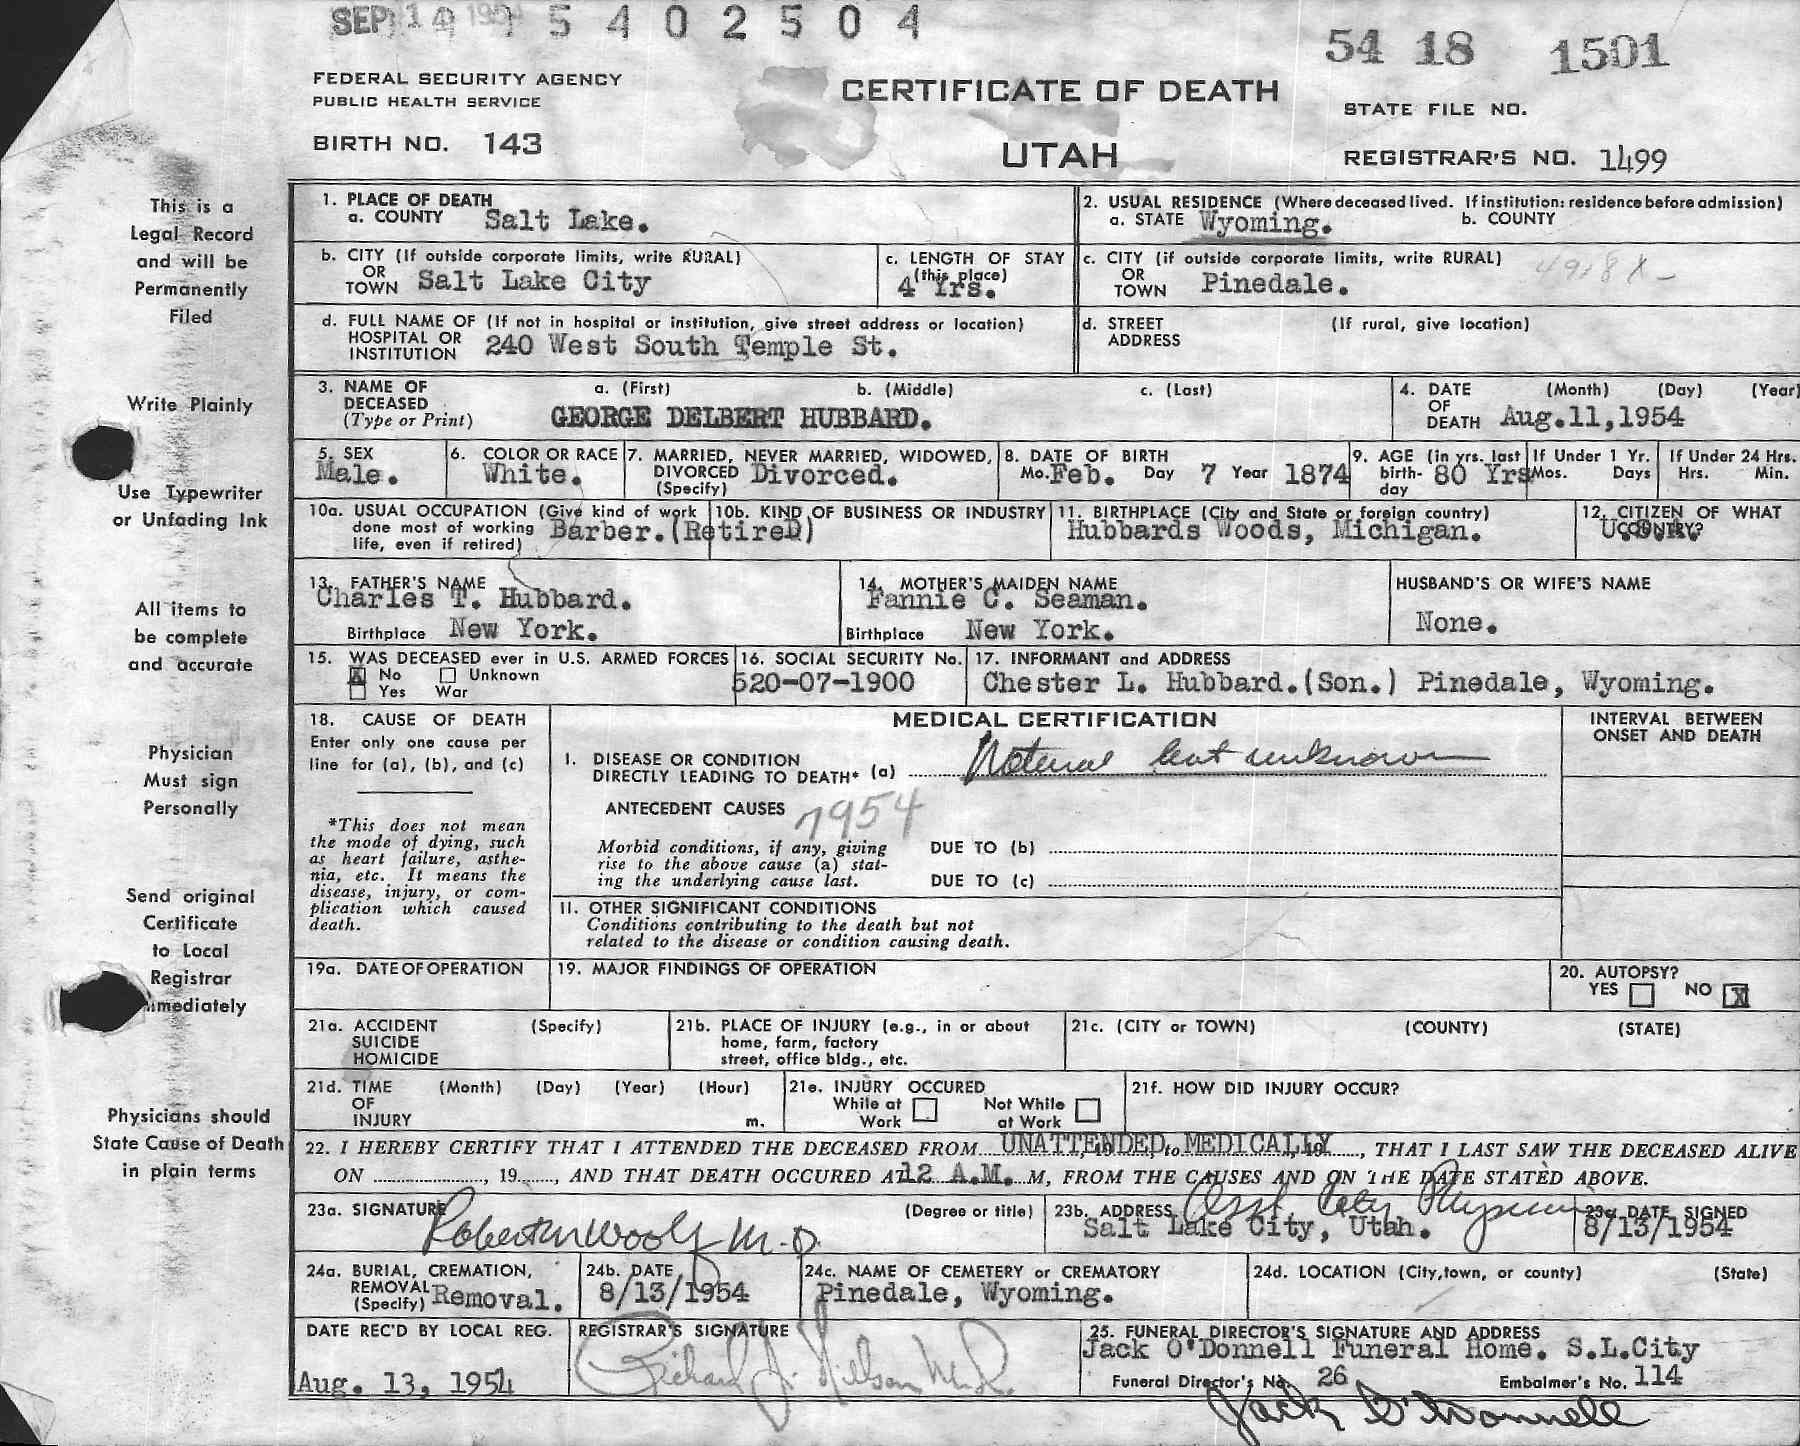 SEP 14 1954 5 4 0 2 5 0 4
54 18 1501
FEDERAL SECURITY AGENCY
PUBLIC HEALTH SERVICE
CERTIFICATE OF DEATH
STATE FILE NO.
BIRTH NO. 143
UTAH
REGISTRAR'S NO. 1499
This is a
Legal Record
and will be
Permanently
Filed
Write Plainly
Use Typewriter
or Unfading Ink
All items to
be complete
and accurate
Physician
Must sign
Personally
Send original
Certificate
to Local
Registrar
mmediately
Physicians should
State Cause of Death
in plain terms
1. PLACE OF DEATH
a. COUNTY Salt Lake.
2. USUAL RESIDENCE (Where deceased lived. If institution: residence before admission)
a. STATE Wyoming. b. COUNTY
b. CITY (If outside corporate limits, write RURAL)
OR
TOWN Salt Lake City
c. LENGTH OF STAY
(this place)
4 Yrs.
c. CITY (if outside corporate limits, write RURAL)
OR
TOWN Pinedale.
d. FULL NAME OF (If not in hospital or institution, give street address or location)
HOSPITAL OR
INSTITUTION 240 West South Temple St.
d. STREET (If rural, give location)
ADDRESS
3. NAME OF a. (First) b. (Middle) c. (Last)
DECEASED
(Type or Print) GEORGE DELBERT HUBBARD.
4. DATE (Month) (Day) (Year)
OF
DEATH Aug.11,1954
5. SEX
Male.
6. COLOR OR RACE
White.
7. MARRIED, NEVER MARRIED, WIDOWED,
DIVORCED Divorced.
(Specify)
8. DATE OF BIRTH
Mo. Feb. Day 7 Year 1874
9. AGE (in yrs. last
birth- 80 Yrs
day
If Under 1 Yr.
Mos. Days
If Under 24 Hrs.
Hrs. Min.
10a. USUAL OCCUPATION (Give kind of work
done most of working
life, even if retired) Barber.(RetireD)
10b. KIND OF BUSINESS OR INDUSTRY
11. BIRTHPLACE (City and State or foreign country)
Hubbards Woods, Michigan.
12. CITIZEN OF WHAT
COUNTRY?
U.S.A.
13. FATHER'S NAME
Charles T. Hubbard.
Birthplace New York.
14. MOTHER'S MAIDEN NAME
Fannie C. Seaman.
Birthplace New York.
HUSBAND'S OR WIFE'S NAME
None.
15. WAS DECEASED ever in U.S. ARMED FORCES
X No Unknown
Yes War
16. SOCIAL SECURITY No.
520-07-1900
17. INFORMANT and ADDRESS
Chester L. Hubbard.(Son.) Pinedale, Wyoming.
18. CAUSE OF DEATH
Enter only one cause per
line for (a), (b), and (c)
*This does not mean
the mode of dying, such
as heart failure, asthe-
nia, etc. It means the
disease, injury, or com-
plication which caused
death.
MEDICAL CERTIFICATION
INTERVAL BETWEEN
ONSET AND DEATH
I. DISEASE OR CONDITION
DIRECTLY LEADING TO DEATH* (a) Natural but unknown
ANTECEDENT CAUSES 7954
Morbid conditions, if any, giving
rise to the above cause (a) stat-
ing the underlying cause last.
DUE TO (b)
DUE TO (c)
II. OTHER SIGNIFICANT CONDITIONS
Conditions contributing to the death but not
related to the disease or condition causing death.
19a. DATE OF OPERATION
19. MAJOR FINDINGS OF OPERATION
20. AUTOPSY?
YES NO X
21a. ACCIDENT (Specify)
SUICIDE
HOMICIDE
21b. PLACE OF INJURY (e.g., in or about
home, farm, factory
street, office bldg., etc.
21c. (CITY or TOWN) (COUNTY) (STATE)
21d. TIME (Month) (Day) (Year) (Hour)
OF
INJURY m.
21e. INJURY OCCURED
While at Work
Not While at Work
21f. HOW DID INJURY OCCUR?
22. I HEREBY CERTIFY THAT I ATTENDED THE DECEASED FROM UNATTENDED, 19 to MEDICALLY 19, THAT I LAST SAW THE DECEASED ALIVE
ON , 19 , AND THAT DEATH OCCURED AT 12 A.M. M, FROM THE CAUSES AND ON THE DATE STATED ABOVE.
23a. SIGNATURE (Degree or title)
Robert W Woolf M.D.
23b. ADDRESS Asst City Physician
Salt Lake City, Utah.
23c. DATE SIGNED
8/13/1954
24a. BURIAL, CREMATION,
REMOVAL
(Specify) Removal.
24b. DATE
8/13/1954
24c. NAME OF CEMETERY or CREMATORY
Pinedale, Wyoming.
24d. LOCATION (City,town, or county) (State)
DATE REC'D BY LOCAL REG.
Aug. 13, 1954
REGISTRAR'S SIGNATURE
Richard J. Nelson M.D.
25. FUNERAL DIRECTOR'S SIGNATURE AND ADDRESS
Jack O'Donnell Funeral Home. S.L.City
Funeral Director's No. 26 Embalmer's No. 114
Jack O'Donnell